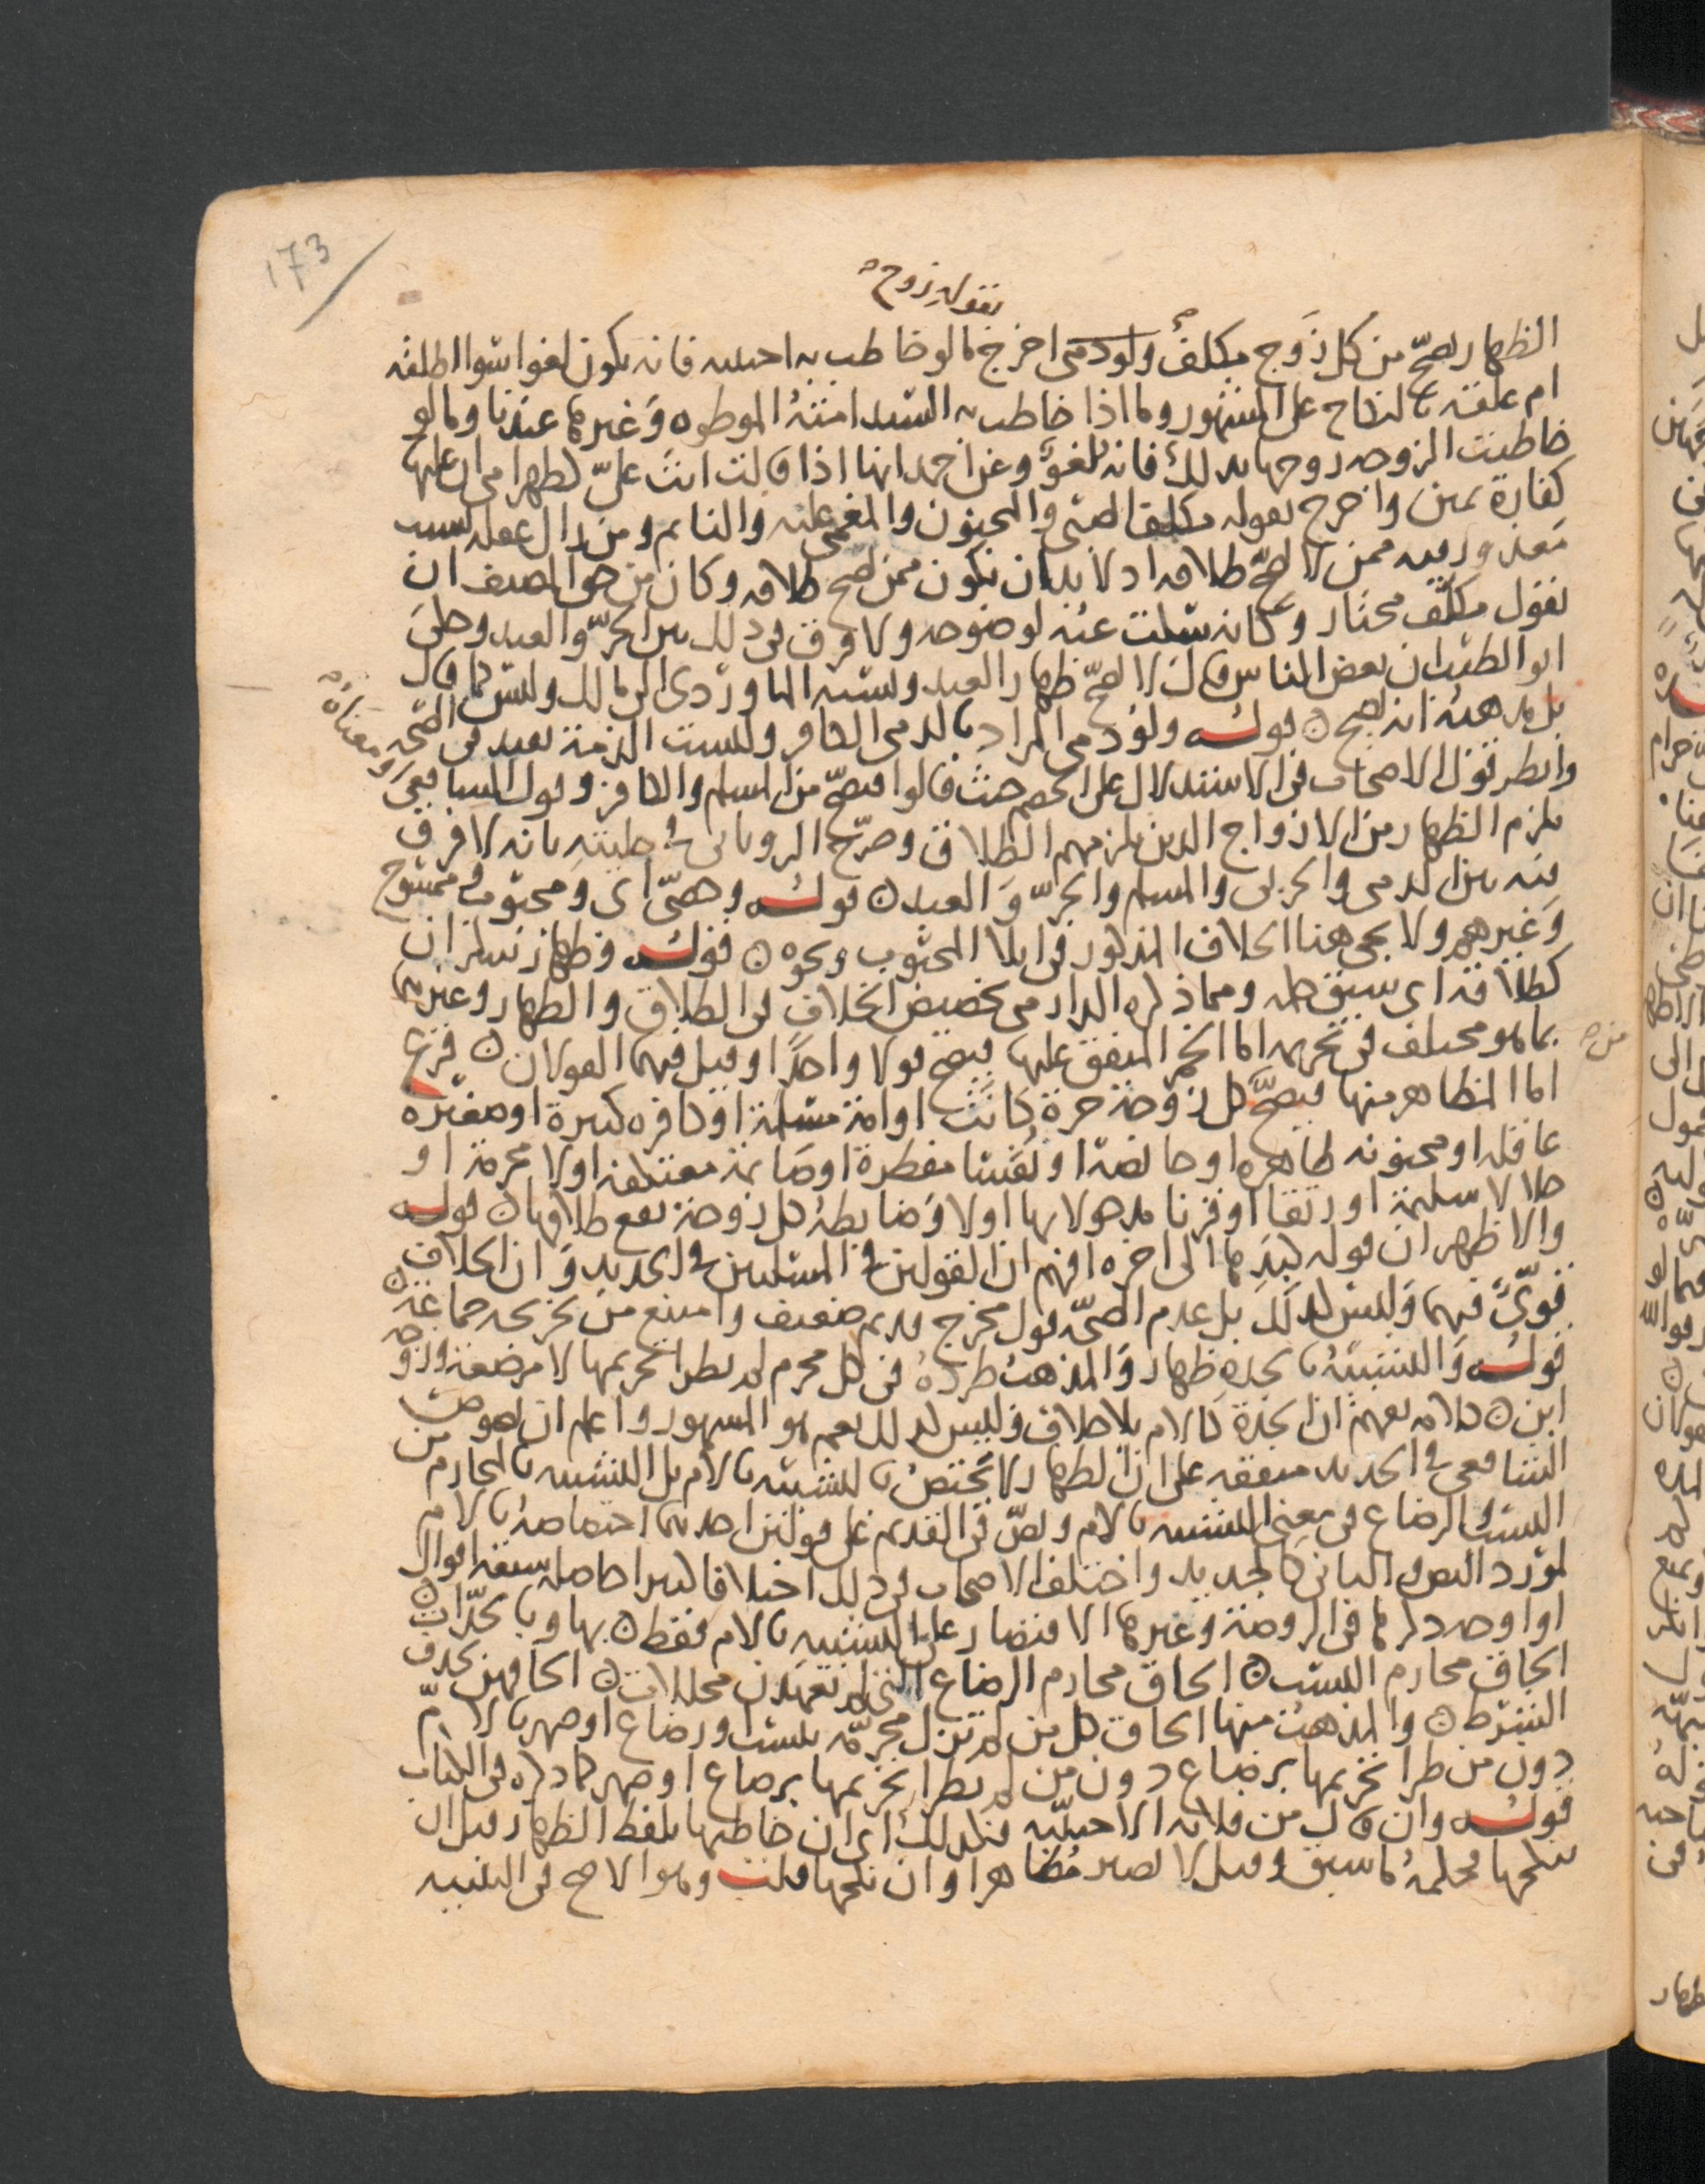 173
بقوله زوج
الظهار يصح من كل زوج مكلف ولو ذمى اخرج ما لو خاطب به اجنبيه فانه يكون لغوا سوا اطلقه
ام علقه بالنكاح على المشهور وما اذا خاطب به السيد امته الموطوه وغيرها عندنا وما لو
خاطبت الزوجه زوجها بذلك فانه لغو وعن احمد انها اذا قالت انت على كظهر امى ان عليها
كفارة يمين واخرج بقوله مكلف الصبى والمجنون والمغمى عليه والنايم ومن زال عقله بسبب
يعذر فيه ممن لا يصح طلاقه اذ لا بد ان يكون ممن يصح طلاقه وكان من حق المصنف ان
يقول مكلف مختار وكانه سكت عنه لوضوحه ولا فرق فى ذلك بين الحر والعبد وحكى
ابو الطيب ان بعض الناس قال لا يصح ظهار العبد ونسبه الماوردى الى مالك وليس كما قال
بل مذهبه انه يصح قوله ولو ذمى المراد بالذمى الكافر وليست الذمة بقيد فى الصحه
وانظر قول الاصحاب فى الاستدلال على الخصم حيث قالوا فيصح من المسلم والكافر وقول الشافعى
ومعناه
يلزم الظهار من الازواج الذين يلزمهم الطلاق وصرح الرويانى فى حليته بانه لا فرق
فيه بين الذمى والحربى والمسلم والحر والعبد قوله وخصى اى ومجبوب وممسوح
وغيرهم ولا يجى هنا الخلاف المذكور فى ايلا المجبوب ونحوه قوله وظهار سكران
كطلاقه اى سبق حكمه ومما ذكره الدارمى تخصيص الخلاف فى الطلاق والظهار وغيرهما
بما هو مختلف فى تحريمه اما الخمر المتفق عليها فيصح قولا واحدا وقيل فيهما القولان فرع
من
اما المظاهر منها فيصح كل زوجة حرة كانت او امة مسلمة او كافره كبيرة او صغيره
عاقله او مجنونه طاهره او حايضة او نفسا مفطرة او صايمة معتكفه اولا محرمة او
حلالا سليمة او رتقا او قرنا مدخولا بها اولا وضابطه كل زوجة يقع طلاقها قوله
والاظهر ان قوله كيدها الى اخره افهم ان القولين فى المسلتين فى الجديد وان الخلاف
قوى فيهما وليس كذلك بل عدم الصحه قول مخرج قديم ضعيف وامتنع من تخريجه جماعة
قوله والتشبيه بالجدة ظهار والمذهب طرده فى كل محرم لم يطرا تحريمها لا مرضعة وزوجة
ابن كلامه يفهم ان الجدة كالام بلا خلاف وليس كذلك نعم هو المشهور واعلم ان نصوص
الشافعى فى الجديد متفقه على ان الظهار لا يختص بالتشبيه بالام بل التشبيه بالمحارم من
النسب والرضاع فى معنى التشبيه بالام ونص فى القديم على قولين احدهما اختصاصه بالام
لمورد النص والثانى كالجديد واختلف الاصحاب فى ذلك اختلافا كثيرا حاصله سبعة اقوال
او اوجه ذكرها فى الروضة وغيرها الاقتصار على التشبيه بالام فقط بها وبالجدات
الحاق محارم النسب الحاق محارم الرضاع التى لم تعهدن محللات الحاقهن بحذف
الشرط والمذهب منها الحاق كل من لم تزل محرمه بنسب ورضاع او صهر بالام
دون من طرا تحريمها برضاع دون من لم يطرا تحريمها برضاع او صهر كما ذكره فى الكتاب
قوله وان قال من فلانه الاجنبيه فكذلك اى ان خاطبها بلفظ الظهار قبل ان
ينكحها فحكمه كما سبق وقيل لا يصير مظاهرا وان نكحها قلت وهو الاصح فى التنبيه